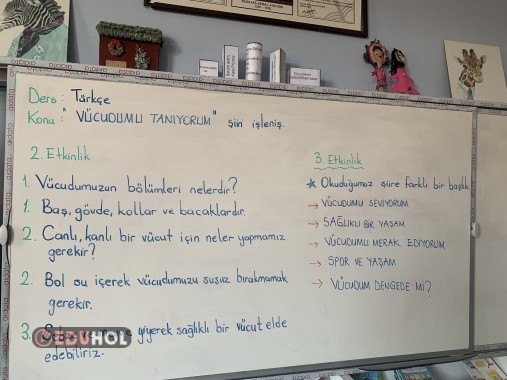 Ders: Türkçe
Konu: "VÜCUDUMU TANIYORUM" şiiri işleniş.
2. Etkinlik
1. Vücudumuzun bölümleri nelerdir?
1. Baş, gövde, kollar ve bacaklardır.
2. Canlı, kanlı bir vücut için neler yapmamız
gerekir?
2. Bol su içerek vücudumuzu susuz bırakmamak
gerekir.
3. yiyerek sağlıklı bir vücut elde
edebiliriz.
3. Etkinlik
Okuduğumuz şiire farklı bir başlık.
→ VÜCUDUMU SEVİYORUM
→ SAĞLIKLI BİR YAŞAM
→ VÜCUDUMU MERAK EDİYORUM
→ SPOR VE YAŞAM
→ VÜCUDUM DENGEDE Mİ?
EDUHOL